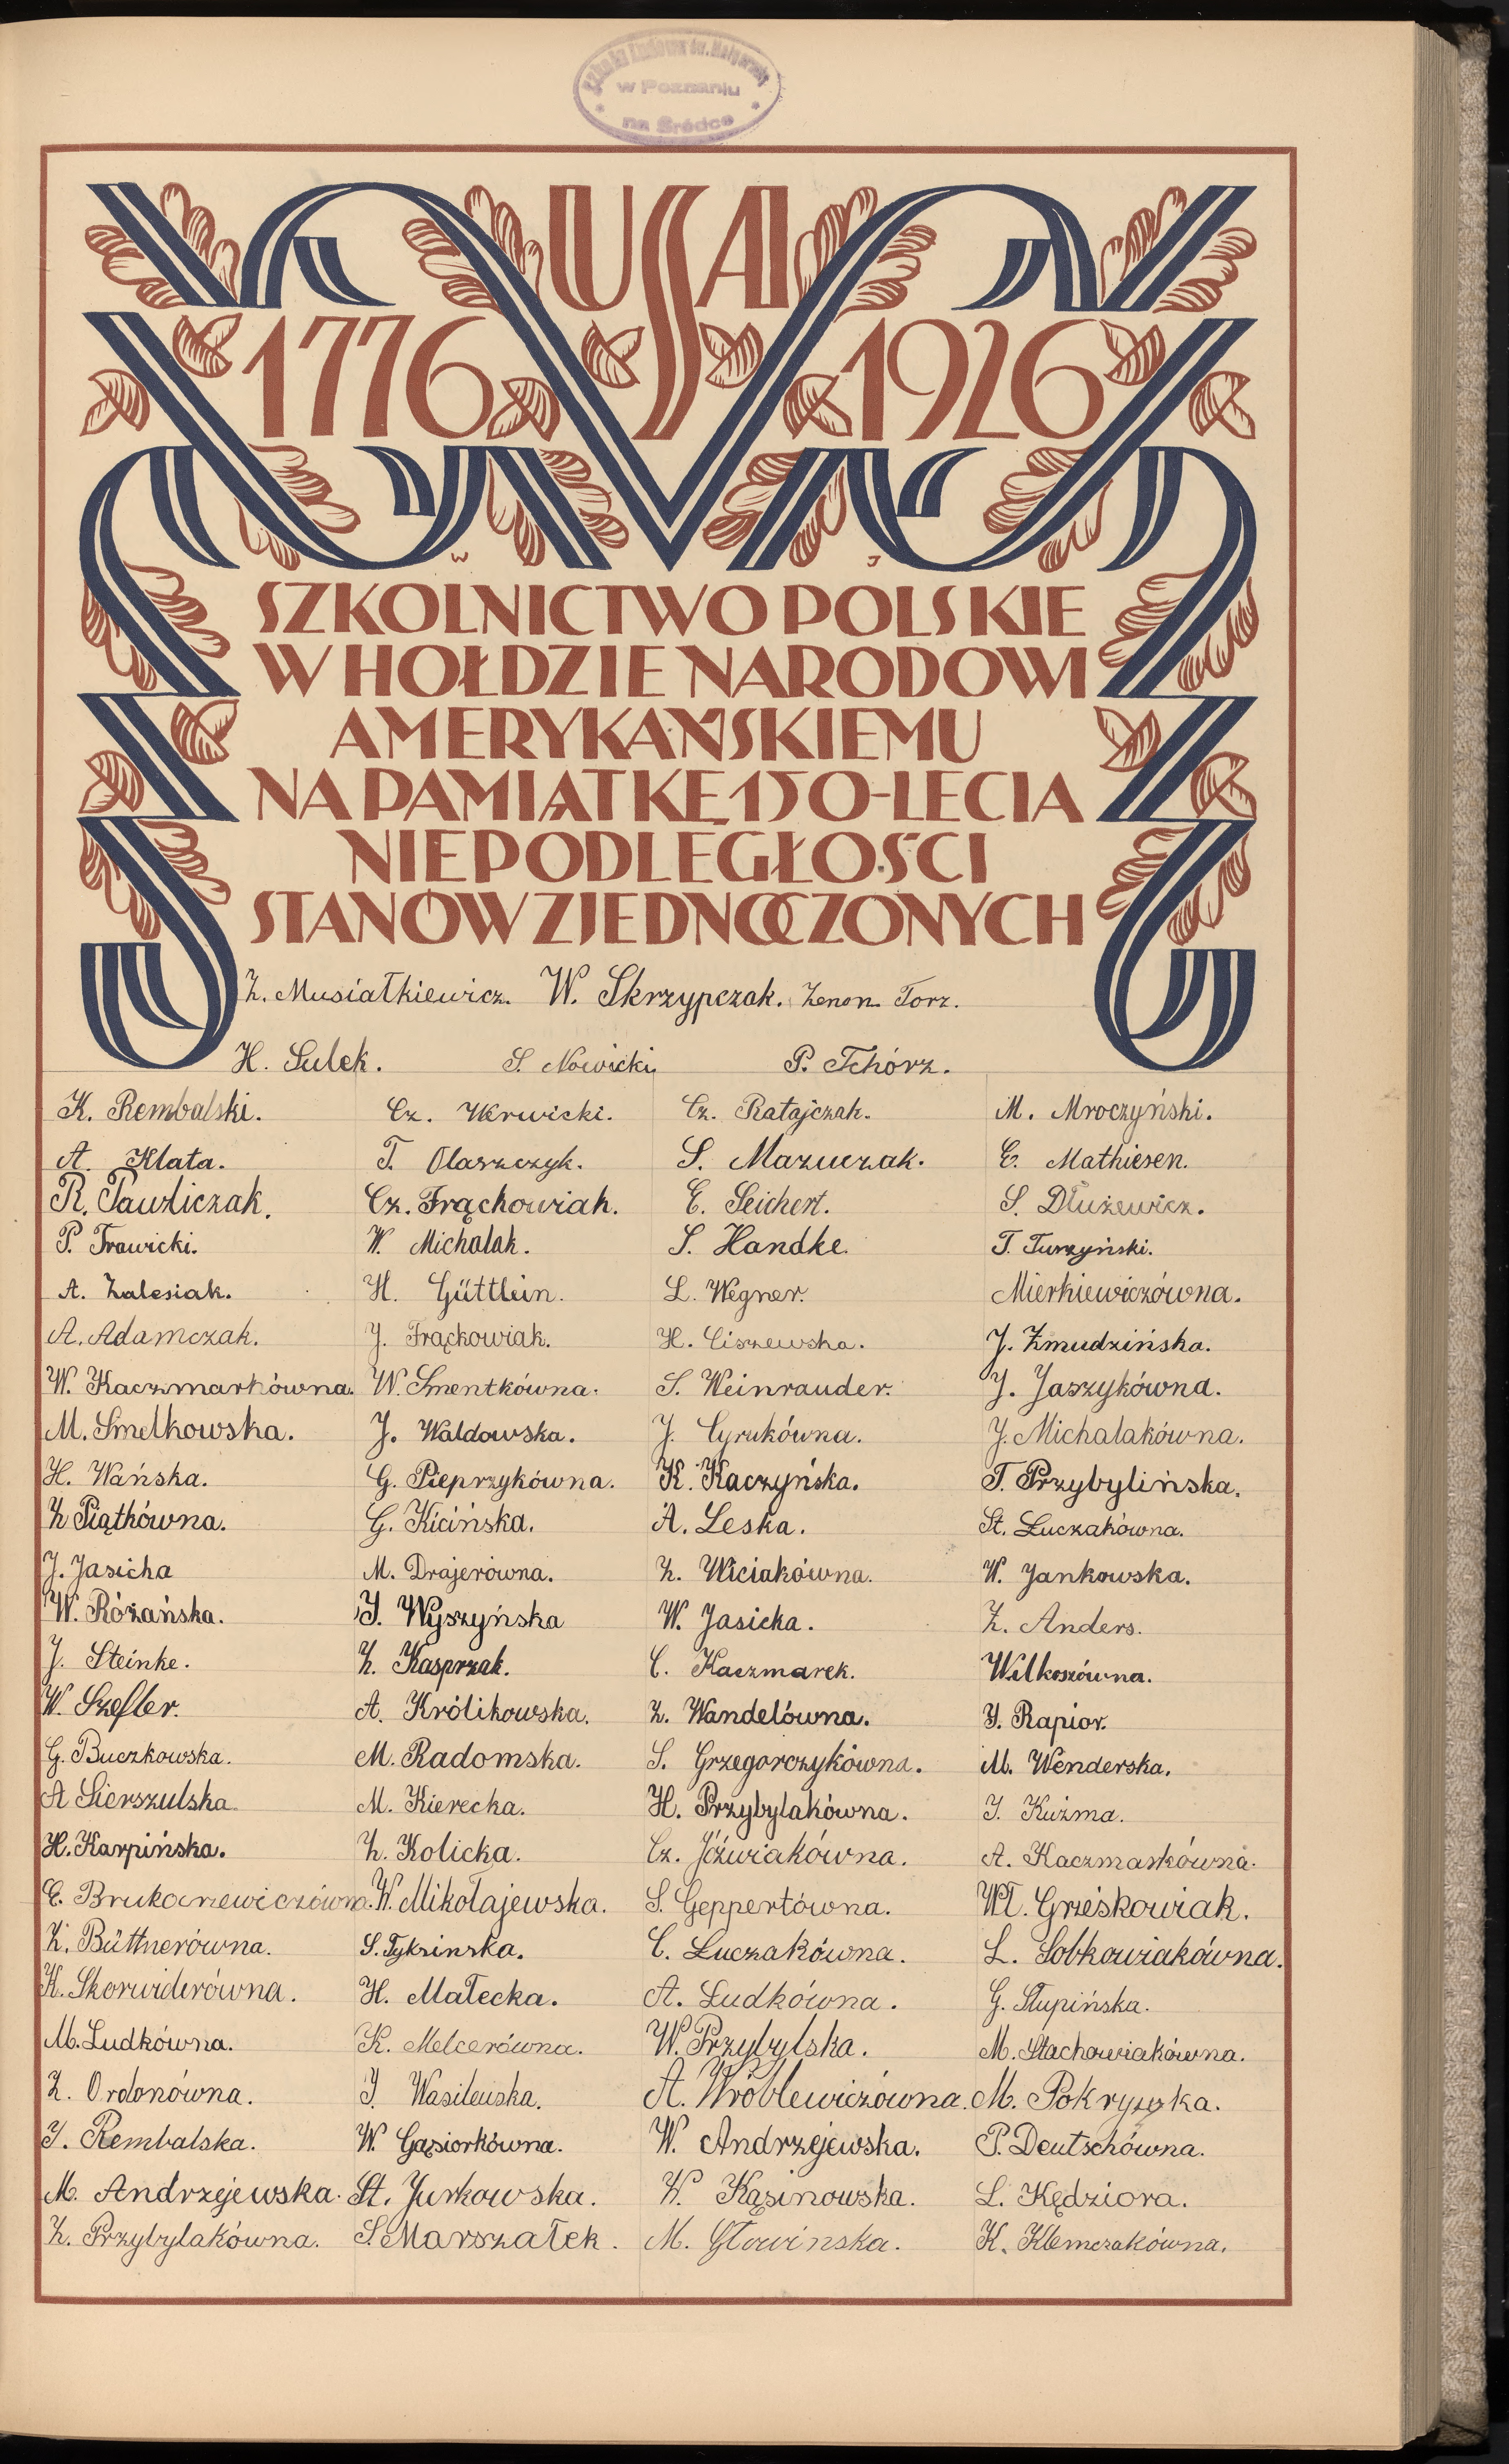 Szkoła Ludowa św. Małgorzaty
w Poznaniu
na Śródce
USA
1776 1926
W J
SZKOLNICTWO POLSKIE
W HOŁDZIE NARODOWI
AMERYKAŃSKIEMU
NA PAMIĄTKĘ 150-LECIA
NIEPODLEGŁOŚCI
STANÓW ZJEDNOCZONYCH
Z. Musiałkiewicz. W. Skrzypczak. Zenon Torz.
H. Sulek. S. Nowicki P. Tchórz.
K. Rembalski. Cz. Krwicki. Cz. Ratajczak. M. Mroczyński.
A. Klata. T. Olaszczyk. S. Mazurczak. E. Mathiesen.
R. Pawliczak. Cz. Frąchowiak. E. Seichert. S. Dłużewicz.
P. Trawicki. W. Michalak. S. Handke. T. Turzyński.
A. Zalesiak. H. Güttlein. L. Wegner. Mierkiewiczówna.
A. Adamczak. J. Frąckowiak. H. Ciszewska. J. Żmudzińska.
W. Kaczmarkówna. W. Smentkówna. S. Weinrauder. J. Jaszykówna.
M. Smelkowska. J. Waldowska. J. Cyrukówna. J. Michalakówna.
H. Wańska. G. Pieprzykówna. K. Kaczyńska. T. Przybylińska.
Z Piątkówna. G. Kicińska. A. Leska. St. Łuczakówna.
J. Jasicha M. Drajerówna. Z. Wiciakówna. W. Jankowska.
W. Różańska. J. Wyszyńska W. Jasicka. Z. Anders.
J. Steinke. Z. Kasprzak. C. Kaczmarek. Wilkoszówna.
W. Szefler. A. Królikowska. Z. Wandelówna. J. Rapior.
G. Buczkowska. M. Radomska. S. Grzegorczykówna. M. Wenderska.
A Sierszulska. M. Kierecka. H. Przybylakówna. J. Kuźma.
H. Karpińska. Z. Kolicka. Cz. Jóźwiakówna. A. Kaczmarkówna.
E. Brukarzewiczówna. W. Mikołajewska. S. Geppertówna. Wł. Grześkowiak.
K. Büttnerówna. S. Tyksinska. C. Łuczakówna. L. Sobkowiakówna.
K. Skorwiderówna. H. Małecka. A. Ludkówna. G. Słupińska.
M. Ludkówna. K. Melcerówna. W. Przybylska. M. Stachowiakówna.
Z. Ordonówna. J. Wasilewska. A. Wróblewiczówna. M. Pokryszka.
J. Rembalska. W. Gąsiorkówna. W. Andrzejewska. P. Deutschówna.
M. Andrzejewska. St. Jurkowska. W. Kąsinowska. L. Kędziora.
Z. Przybylakówna. S. Marszałek. M. Głowinska. K. Klemczakówna.